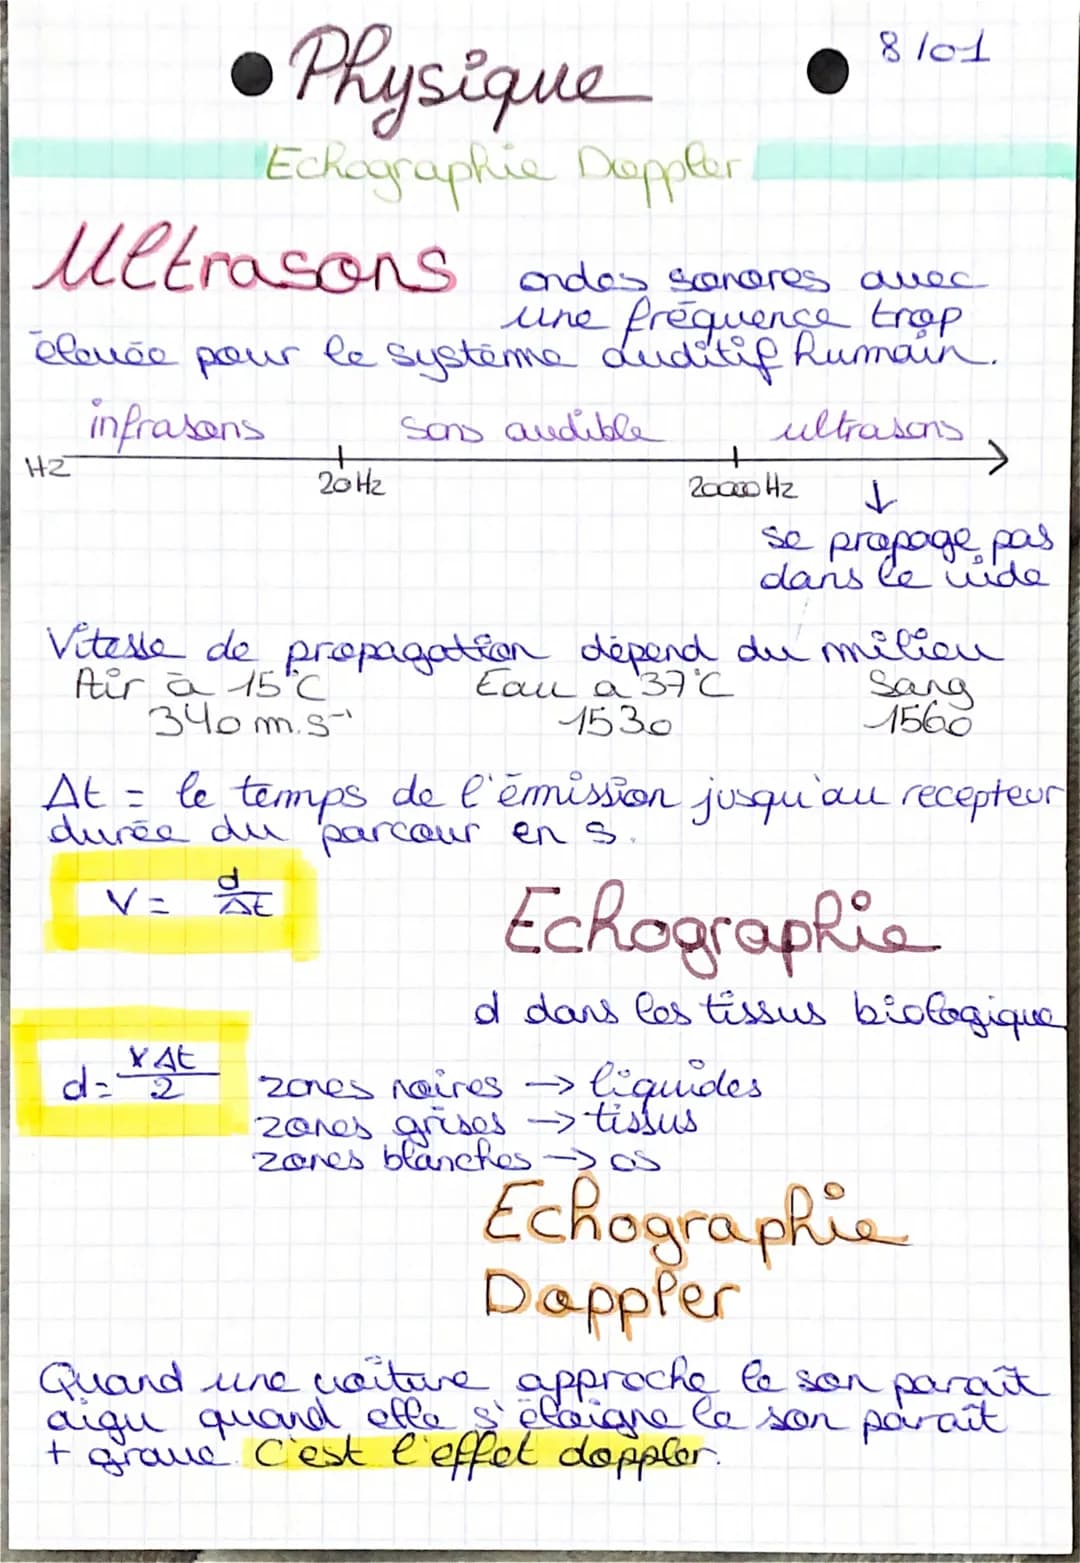 Physique
8/01
Echographie Doppler
Ultrasons ondes sonores avec
une fréquence trop
élevée pour le système auditif humain.
infrasons sons audible ultrasons
HZ 20Hz 20000Hz ↓
se propage pas
dans le vide
Vitesse de propagation dépend du milieu
Air à 15°C Eau a 37°C Sang
340 m.s⁻¹ 1530 1560
Δt = le temps de l'émission jusqu'au recepteur
durée du parcour en s.
V = d/Δt
Echographie
d dans les tissus biologique
d = v Δt/2
zones noires → liquides
zones grises → tissus
zones blanches → os
Echographie
Doppler
Quand une voiture approche le son paraît
aigu quand elle s'éloigne le son paraît
+ grave. C'est l'effet doppler.